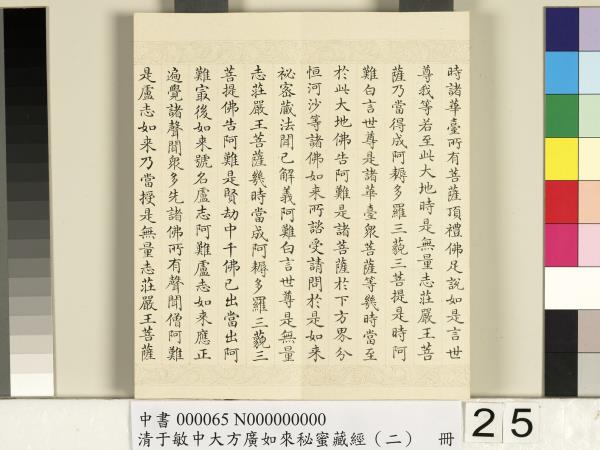 時諸華臺所有菩薩頂禮佛足說如是言世
尊我等若至此大地時是無量志莊嚴王菩
薩乃當得成阿耨多羅三藐三菩提是時阿
難白言世尊是諸華臺眾菩薩等幾時當至
於此大地佛告阿難是諸菩薩於下方界分
恒河沙等諸佛如來所諮受請問於是如來
祕密藏法聞已解義阿難白言世尊是無量
志莊嚴王菩薩幾時當成阿耨多羅三藐三
菩提佛告阿難是賢劫中千佛已出當出阿
難最後如來號名盧志阿難盧志如來應正
遍覺諸聲聞眾多先諸佛所有聲聞僧阿難
是盧志如來乃當授是無量志莊嚴王菩薩
中書 000065 N000000000
清于敏中大方廣如來秘蜜藏經（二） 冊
25